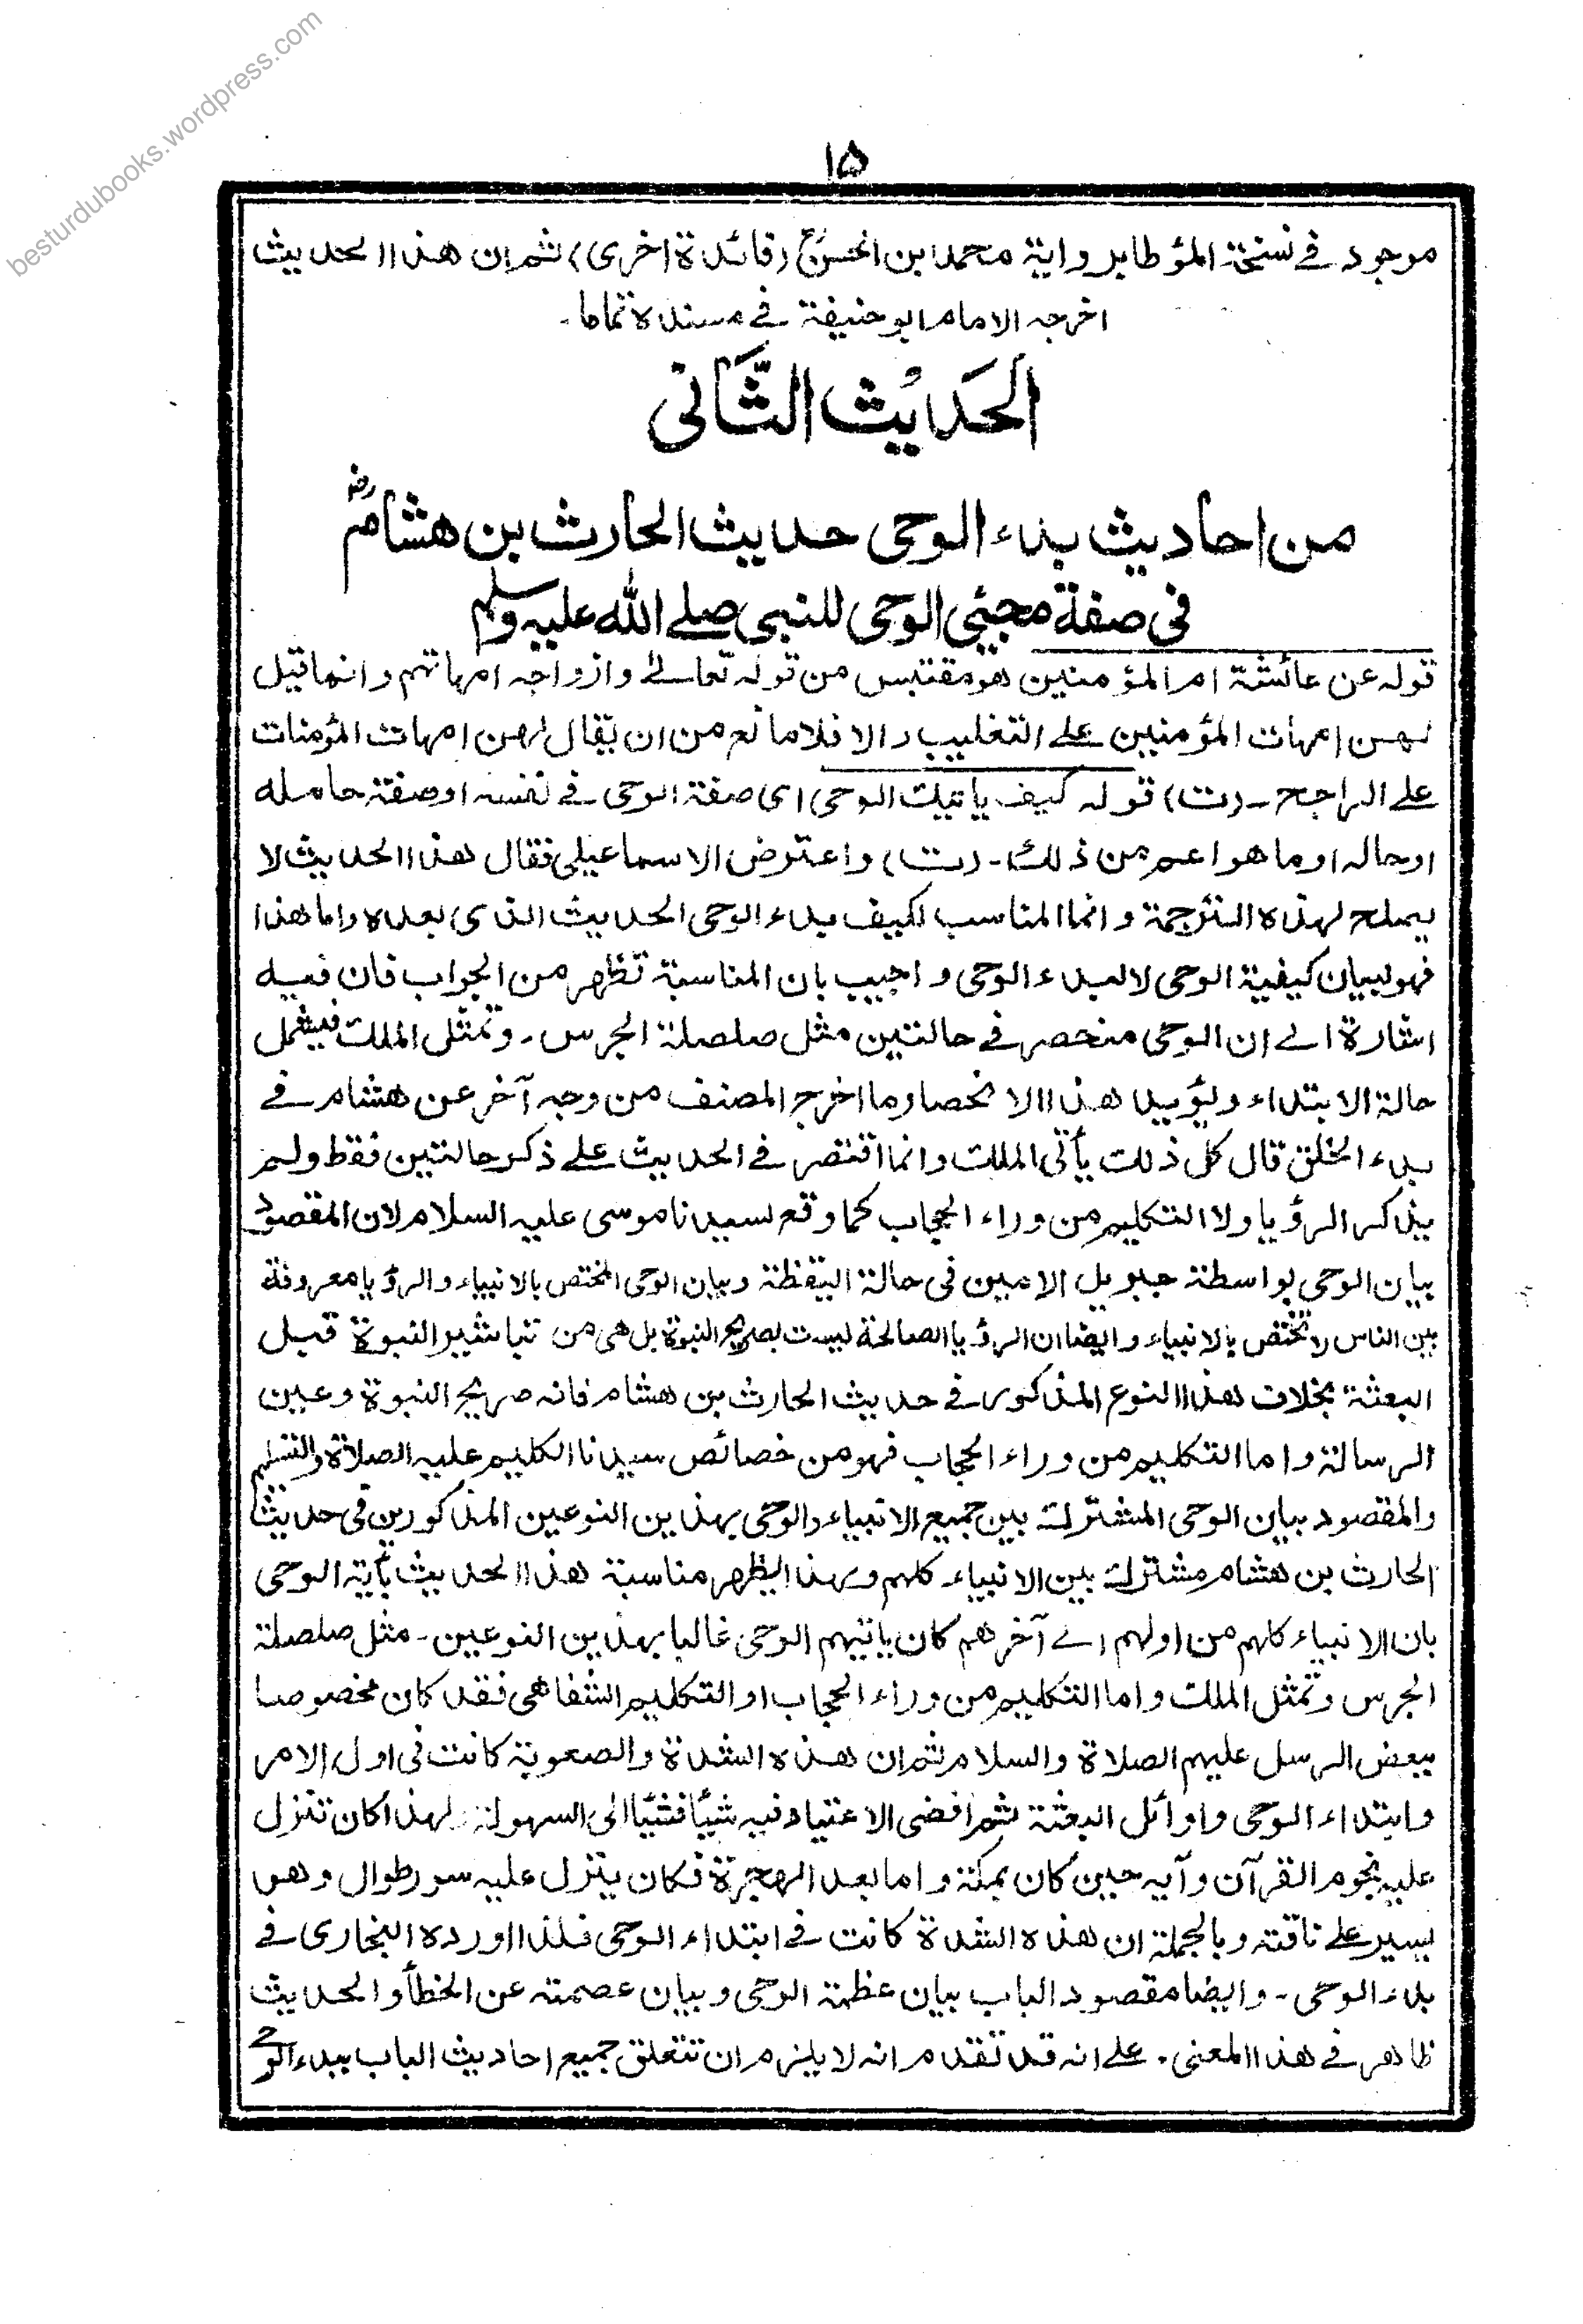 besturdubooks.wordpress.com
۱۵
موجود فی نسخۃ المؤطا بروایۃ محمد ابن الحسنؒ (فائدۃ اخری) ثم ان ھذا الحدیث
اخرجہ الامام ابو حنیفۃ فی مسندہ تماما۔
الحَدیْث الثَّانی
من احادیث بدء الوحی حدیث الحارث بن ھشامؓ
فی صفۃ مجیئی الوحی للنبی صلے اللہ علیہ وسلم
قولہ عن عائشۃ ام المؤمنین ھو مقتبس من قولہ تعالےٰ وازواجہ امہاتھم وانما قیل
لھن امہات المؤمنین علے التغلیب والا فلا مانع من ان یقال لھن امہات المؤمنات
علے الراجح۔ (ت) قولہ کیف یاتیک الوحی ای صفۃ الوحی فی نفسہ او صفۃ حاملہ
اوحالہ او ما ھو اعم من ذلک۔ (ت) واعترض الاسماعیلی فقال ھذا الحدیث لا
یصلح لھذہ الترجمۃ وانما المناسب لکیف بدء الوحی الحدیث الذی بعدہ واما ھذا
فھو لبیان کیفیۃ الوحی لا لبدء الوحی واجیب بان المناسبۃ تظھر من الجواب فان فیہ
اشارۃ الے ان الوحی منحصر فی حالتین مثل صلصلۃ الجرس۔ وتمثل الملک فیشمل
حالۃ الابتداء ویؤید ھذا الانحصار ما اخرج المصنف من وجہ آخر عن ھشام فی
بدء الخلق قال کل ذلک یأتی الملک وانما اقتصر فی الحدیث علے ذکر حالتین فقط ولم
یذکر الرؤیا ولا التکلیم من وراء الحجاب کما وقع لسیدنا موسی علیہ السلام لان المقصود
بیان الوحی بواسطۃ جبریل الامین فی حالۃ الیقظۃ وبیان الوحی المختص بالانبیاء والرؤیا معروفۃ
بین الناس لا تختص بالانبیاء وایضا ان الرؤیا الصالحۃ لیست بصریح النبوۃ بل ھی من تباشیر النبوۃ قبل
البعثۃ بخلاف ھذا النوع المذکور فی حدیث الحارث بن ھشام فانہ صریح النبوۃ وعین
الرسالۃ واما التکلیم من وراء الحجاب فھو من خصائص سیدنا الکلیم علیہ الصلاۃ والتسلیم
والمقصود بیان الوحی المشترک بین جمیع الانبیاء والوحی بھذین النوعین المذکورین فی حدیث
الحارث بن ھشام مشترک بین الانبیاء کلھم وبھذا یظھر مناسبۃ ھذا الحدیث بآیۃ الوحی
بان الانبیاء کلھم من اولھم الے آخرھم کان یاتیھم الوحی غالبا بھذین النوعین۔ مثل صلصلۃ
الجرس وتمثل الملک واما التکلیم من وراء الحجاب او التکلیم الشفاھی فقد کان مخصوصا
ببعض الرسل علیھم الصلاۃ والسلام ثم ان ھذہ الشدۃ والصعوبۃ کانت فی اول الامر
وابتداء الوحی واوائل البعثۃ ثم افضی الاعتیاد فیہ شیئا فشیئا الی السھولۃ لھذا کان تنزل
علیہ نجوم القرآن وآیہ حین کان بمکۃ واما بعد الھجرۃ فکان ینزل علیہ سور طوال وھو
یسیر علے ناقتہ وبالجملۃ ان ھذہ الشدۃ کانت فی ابتداء الوحی فلذا اوردہ البخاری فی
بدء الوحی۔ وایضا مقصود الباب بیان عظمۃ الوحی وبیان عصمتہ عن الخطأ والحدیث
ظاھر فی ھذا المعنی۔ علے انہ قد تقدم انہ لا یلزم ان تتعلق جمیع احادیث الباب ببدء الوحی